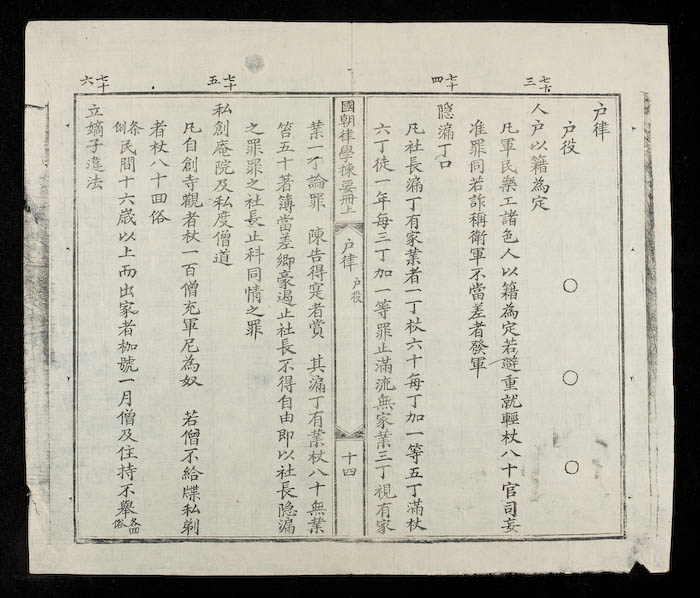 七十三
七十四
戶律
戶役
人戶以籍為定
凡軍民樂工諸色人以籍為定若避重就輕杖八十官司妄
准罪同若詐稱衛軍不當差者發軍
隱漏丁口
凡社長漏丁有家業者一丁杖六十每丁加一等五丁滿杖
六丁徒一年每三丁加一等罪止滿流無家業三丁視有家
國朝律學揀要冊上
戶律
戶役
十四
七十五
七十六
業一丁論罪 陳告得寔者賞 其漏丁有業杖八十無業
笞五十著簿當差鄉豪遏止社長不得自由即以社長隱漏
之罪罪之社長止科同情之罪
私創庵院及私度僧道
凡自創寺觀者杖一百僧充軍尼為奴 若僧不給牒私剃
者杖八十回俗
条例民間十六歲以上而出家者枷號一月僧及住持不舉各回俗
立嫡子違法